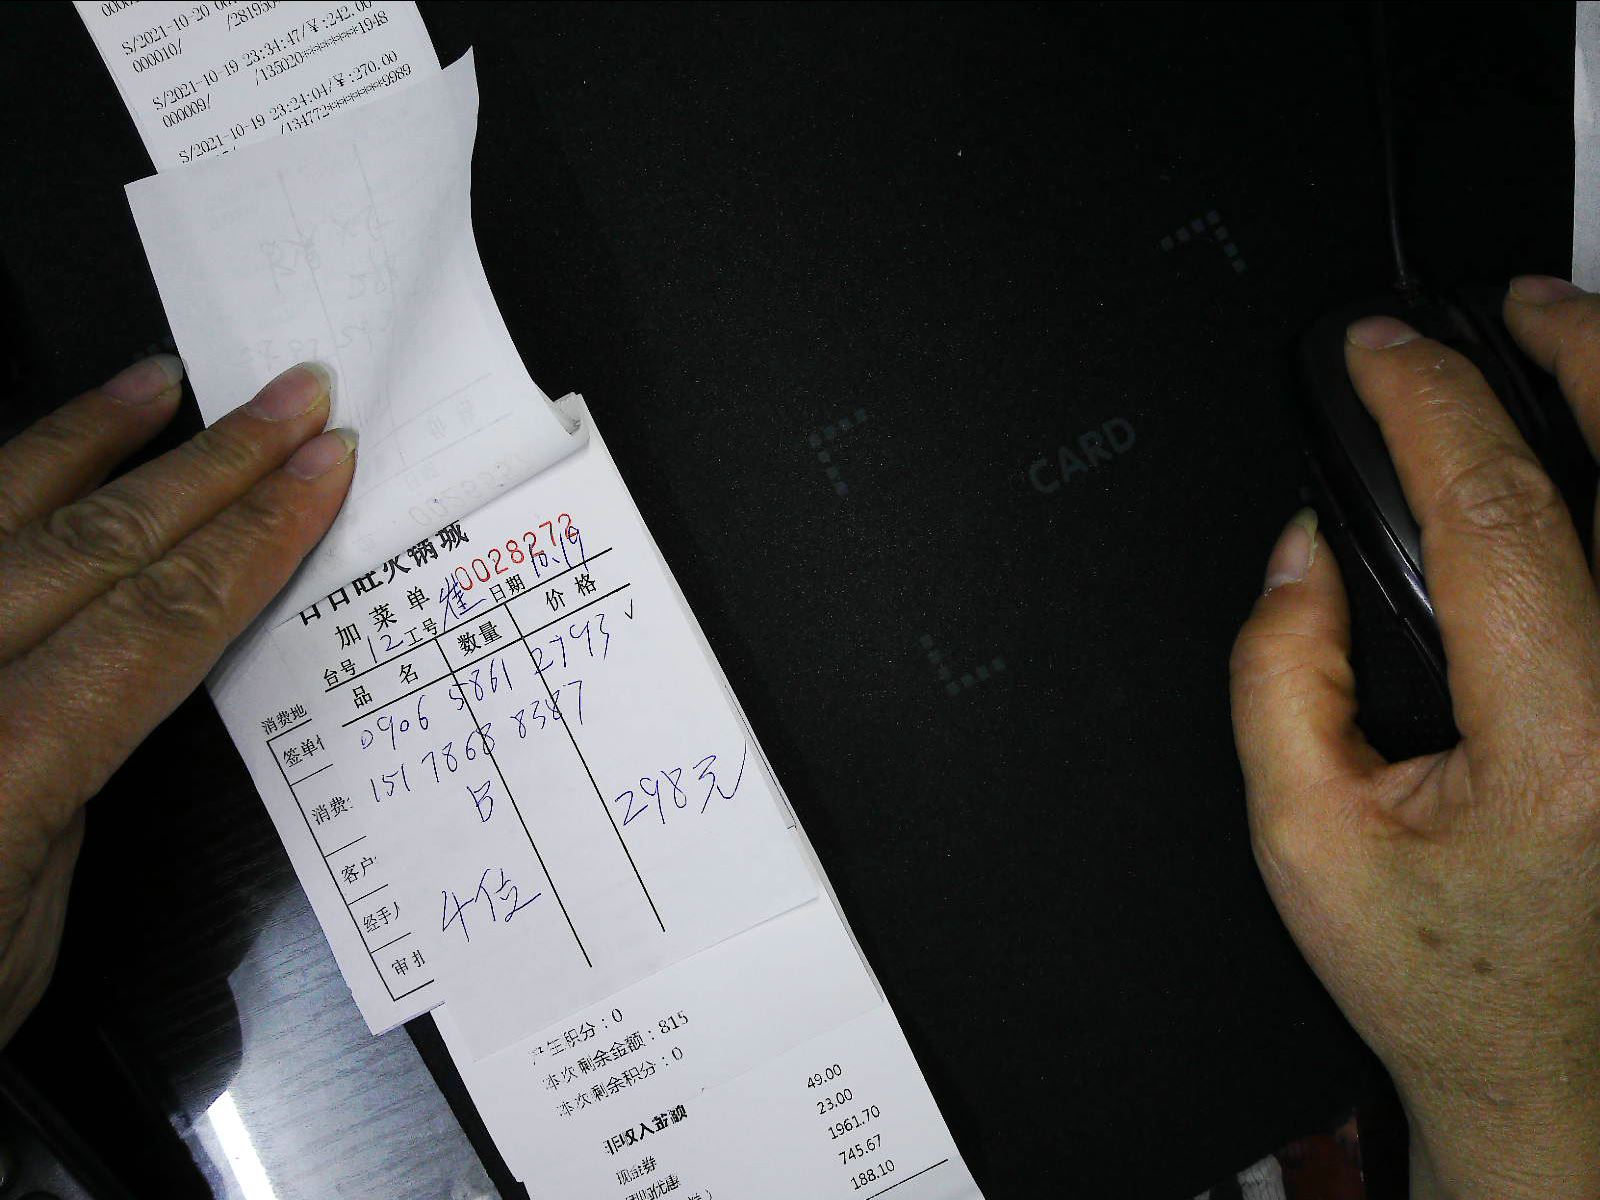 S/2021-10-20
000010/
S/2021-10-19 23:34:47/¥:242.00
000009/ /135020*******1948
S/2021-10-19 23:24:04/¥:270.00
/134772*******9989
日日旺火锅城
加菜单 0028272
台号 12 工号 崔 日期 10.19
品名 数量 价格
0906 5861 2793 √
151 7868 8387
B
298元
4位
消费地
签单
消费
客户
经手
审批
产生积分：0
本次剩余金额：815
本次剩余积分：0
非收入金额
现金券 49.00
23.00
1961.70
745.67
188.10
CARD